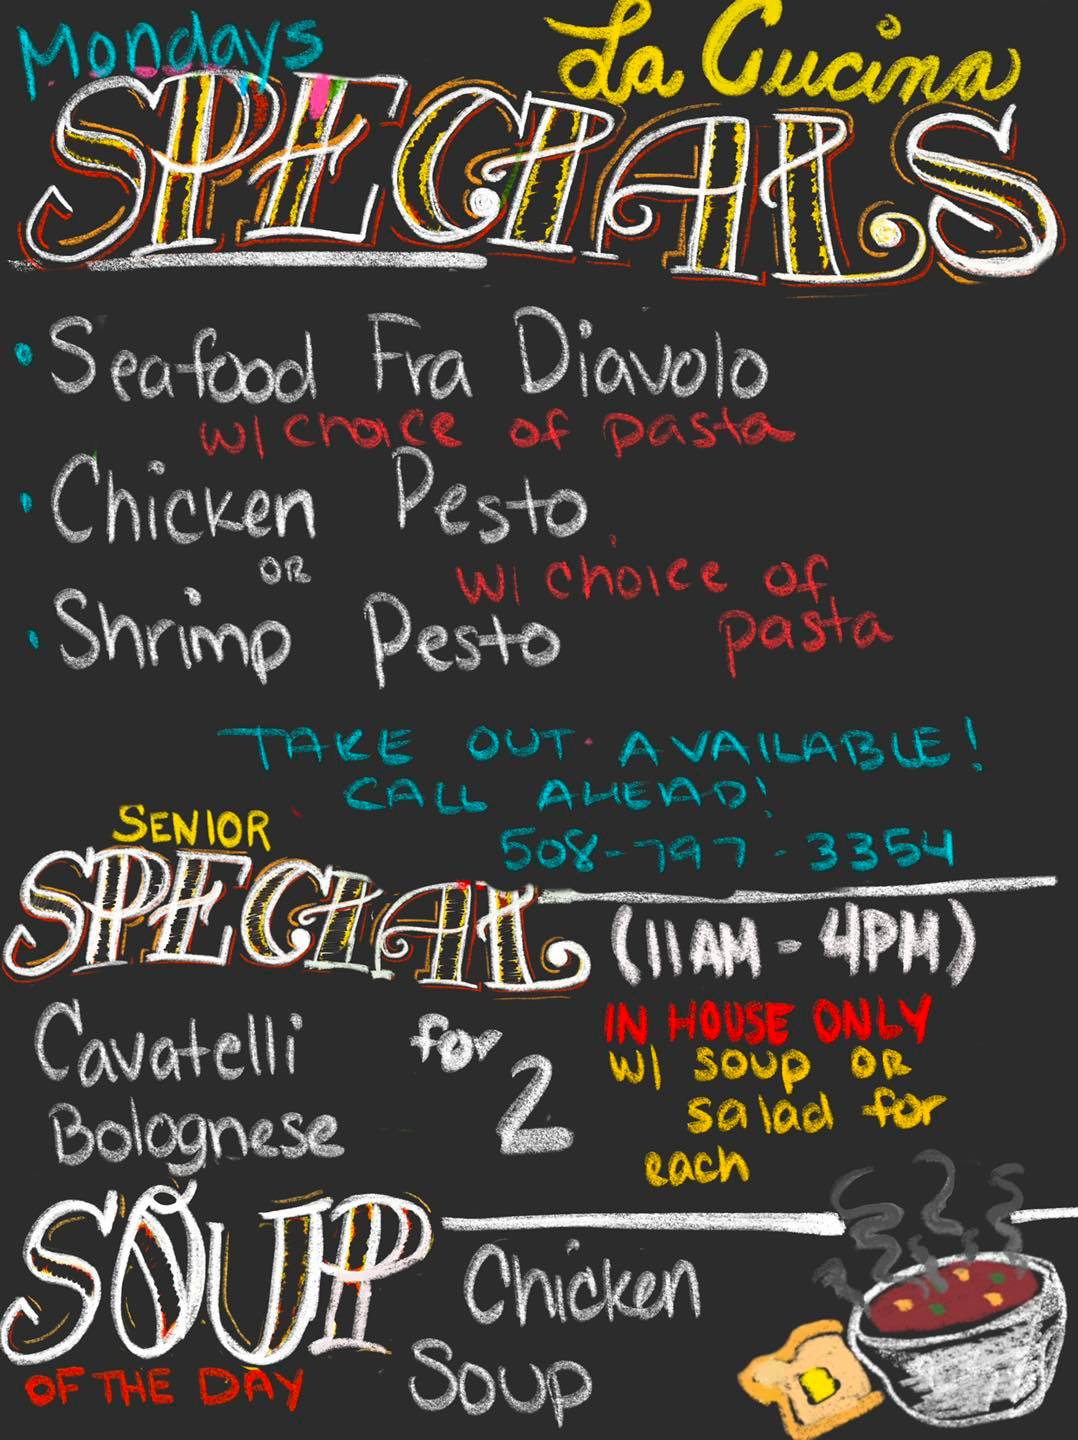 Mondays
La Cucina
SPECIALS
• Seafood Fra Diavolo
w/ choice of pasta
• Chicken Pesto
OR
w/ choice of
• Shrimp Pesto
pasta
TAKE OUT AVAILABLE!
CALL AHEAD!
508-797-3354
SENIOR
SPECIAL
(11AM - 4PM)
Cavatelli
Bolognese
for
2
IN HOUSE ONLY
w/ soup OR
salad for
each
SOUP
OF THE DAY
Chicken
Soup